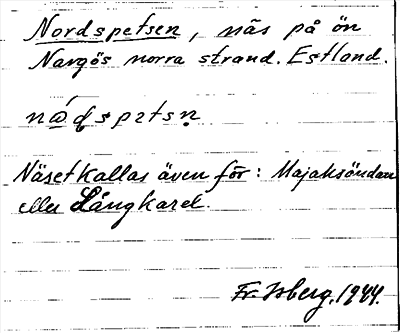 Nordspetsen, näs på ön
Nargös norra strand. Estland.
Näset kallas även för: Majaksöudan
eller Långkarel.
Fr. Isberg, 1944.